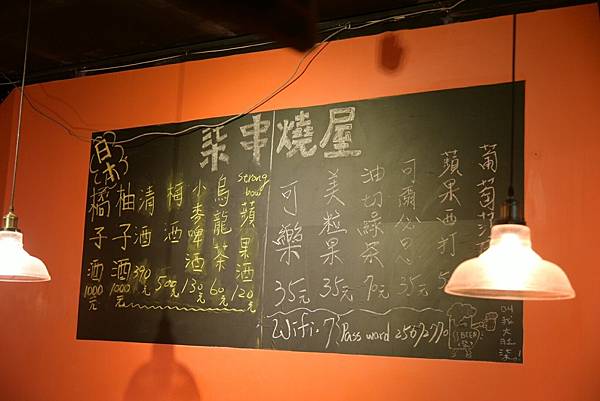 柒串燒屋
葡萄
蘋果西打
可爾必思
油切綠茶 70元
美粒果 35元
可樂 35元
strong bow 蘋果酒 120元
烏龍茶 60元
小麥啤酒 130元
梅酒 500元
清酒 390元
柚子酒 1000元
橘子酒 1000元
日本
Wifi.
Pass word
BEER
叫我大肚柒!